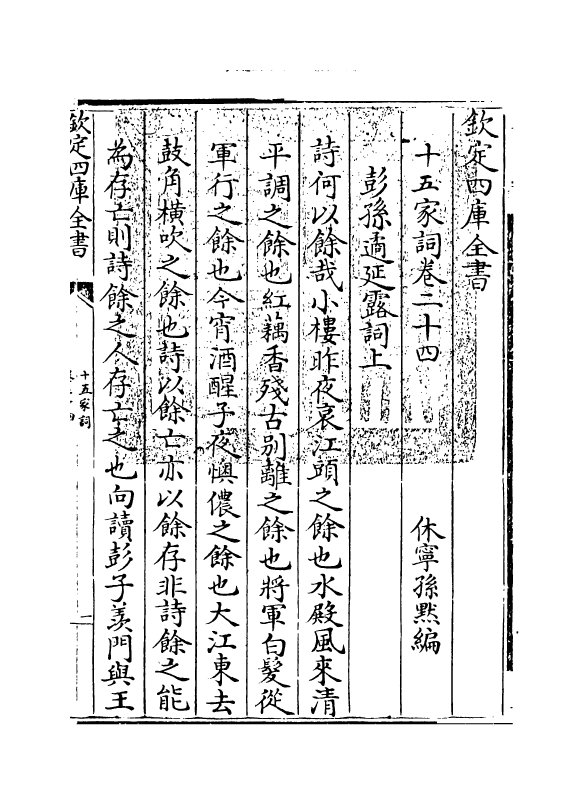 欽定四庫全書
十五家詞卷二十四
休寧孫黙編
彭孫遹延露詞上
詩何以餘哉小樓昨夜哀江頭之餘也水殿風來清
平調之餘也紅藕香殘古别離之餘也將軍白髮從
軍行之餘也今宵酒醒子夜懊儂之餘也大江東去
鼓角橫吹之餘也詩以餘亡亦以餘存非詩餘之能
為存亡則詩餘之人存亡之也向讀彭子羨門與王
欽定四庫全書
十五家詞
一